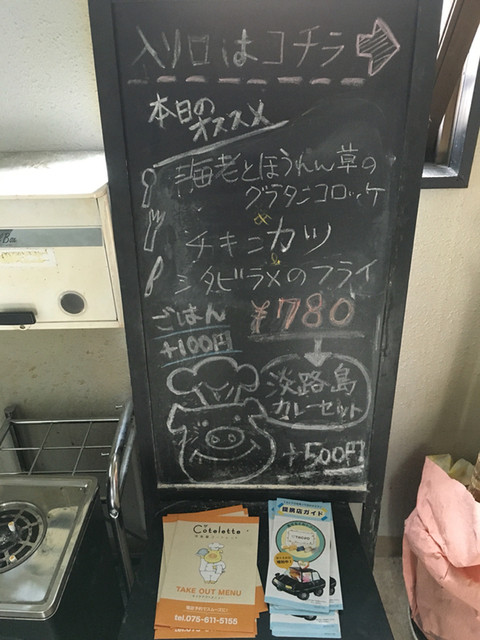 入り口はコチラ
本日の
オススメ
海老とほうれん草の
グラタンコロッケ
&
チキンカツ
&
シタビラメのフライ
ごはん
+100円
¥780
淡路島
カレーセット
+500円
Cotolette
TAKE OUT MENU
tel.075-611-5155
提携店ガイド